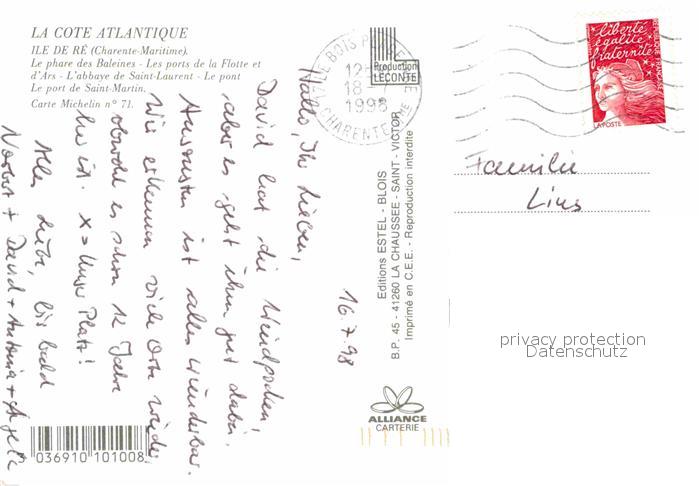 LA COTE ATLANTIQUE
ILE DE RÉ (Charente-Maritime).
Le phare des Baleines - Les ports de la Flotte et
d'Ars - L'abbaye de Saint-Laurent - Le pont
Le port de Saint-Martin.
Carte Michelin n° 71.
Production
LECONTE
LE BOIS PLAGE
18
1998
CHARENTE
liberté
égalité
fraternité
REPUBLIQUE FRANÇAISE
LA POSTE
16.7.98
Hallo, Ihr Lieben,
David hat die Windpocken,
aber es geht ihm gut dabei.
Ansonsten ist alles wunderbar.
Wir erkennen viele Orte wieder,
obwohl es schon 12 Jahre
her ist. x = Unser Platz!
Alles Liebe, bis bald
Norbert + David + Antonia + Angela
Editions ESTEL - BLOIS
B.P. 45 - 41260 LA CHAUSSEE - SAINT - VICTOR
Imprimé en C.E.E. - Reproduction interdite
Familie
Lins
privacy protection
Datenschutz
ALLIANCE
CARTERIE
036910 101008